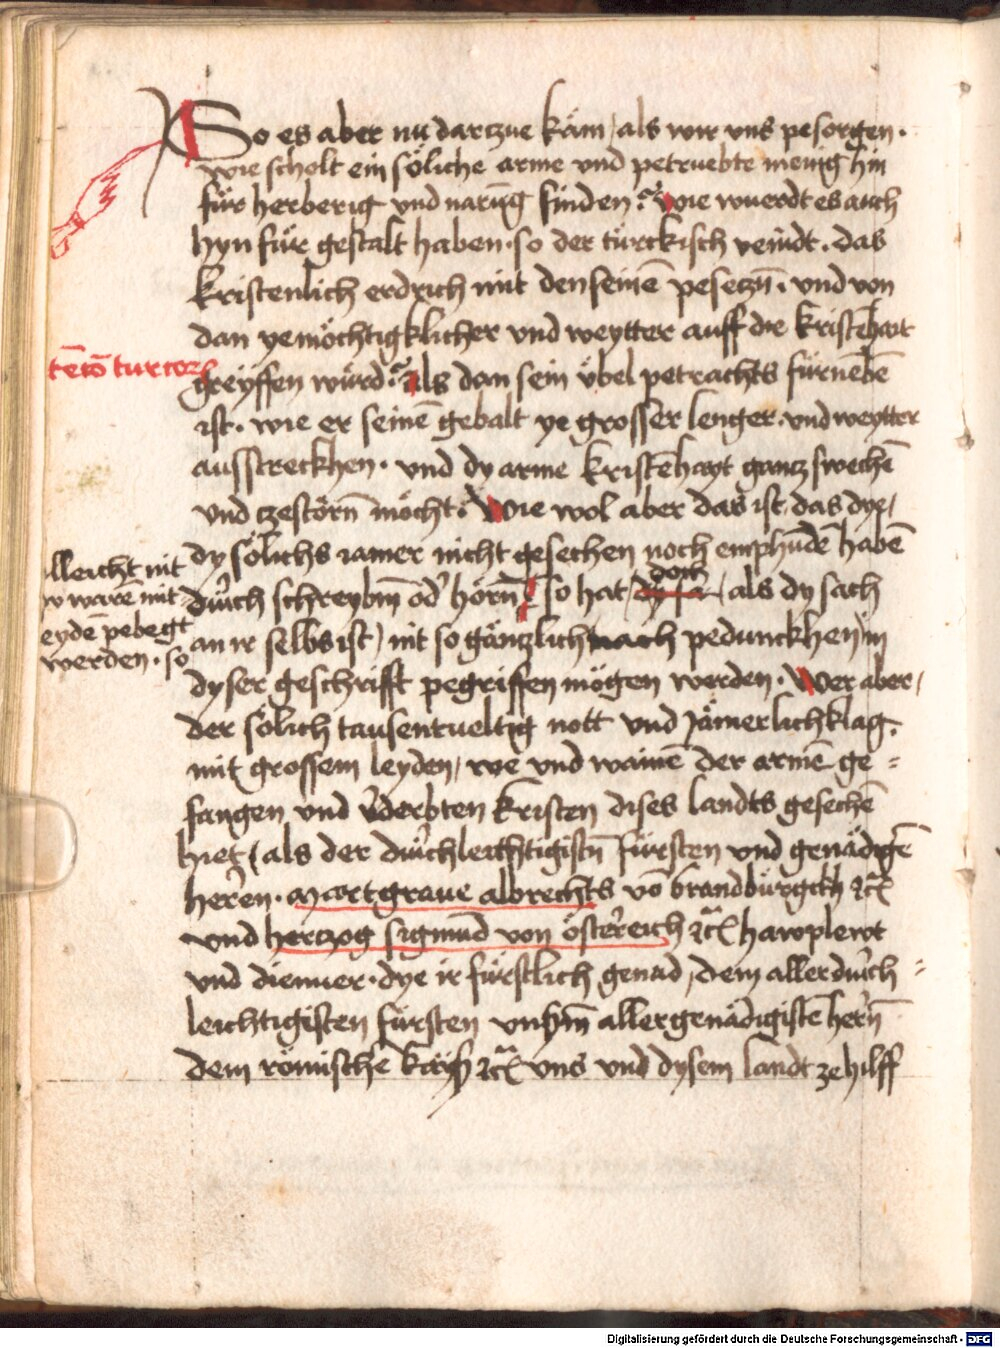 So es aber nu darczue käm / als wir vns pesorgen ·
wie scholt ein söliche arme vnd petruebte menig hin
für herberig vnd narūg finden? wie wuerdt es auch
hyn für gestalt haben · so der türckisch veindt · das
kristenlich erdrich mit den seinē peseczn̄ · vnd von
dan ye möchtigklicher vnd weytter auff die kristēhait
tētō turcor
greyffen würd? als dan sein übel petrachts fürnēbē
ist · wie er seinē gebalt ye grosser lenger · vnd weytter
ausstreckhen · vnd dy arme kristēhayt gancz swechē
vnd czestörn̄ möcht? Wie wol aber das ist / das dye /
dy sölichs iamer nicht gesechen noch emphundē habē
lleicht nit
w warē mit
eydē pebegt
werden · so
durch schreybm̄ od' hörn̄ / so hat / doch / als dy sach
an ir selbs ist / nit so gänczlich nach pedunckhen in
dyser geschrifft pegriffen mögen werden · Wer aber /
der sölich tausentueltig nott vnd Jämerlich klag ·
mit grossem leyden / we vnd wainē der armē ge =
fangen vnd v'derbten kristen dises landts gesechē
hiet / als der durchleichtigistn̄ fürsten vnd genädigē
heren · Martgraue albrechts vō brandbürgckh ꝛcᷓ
vnd herczog sigmūd von österreich ꝛcᷓ hawplewt
vnd dienner · dye ir fürstlich genad / dem allerdurch =
leichtigisten fürsten vnsm̄ allergenädigistē hern̄
dem römischē kaysr ꝛcᷓ vns vnd dysem landt ze hilff
Digitalisierung gefördert durch die Deutsche Forschungsgemeinschaft - DFG